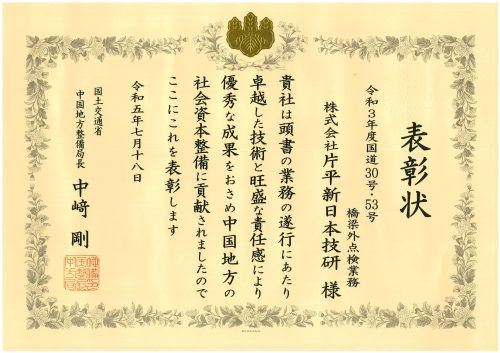 表彰状
令和3年度国道30号・53号
橋梁外点検業務
株式会社片平新日本技研 様
貴社は頭書の業務の遂行にあたり
卓越した技術と旺盛な責任感により
優秀な成果をおさめ中国地方の
社会資本整備に貢献されましたので
ここにこれを表彰します
令和五年七月十八日
国土交通省
中国地方整備局長 中﨑 剛